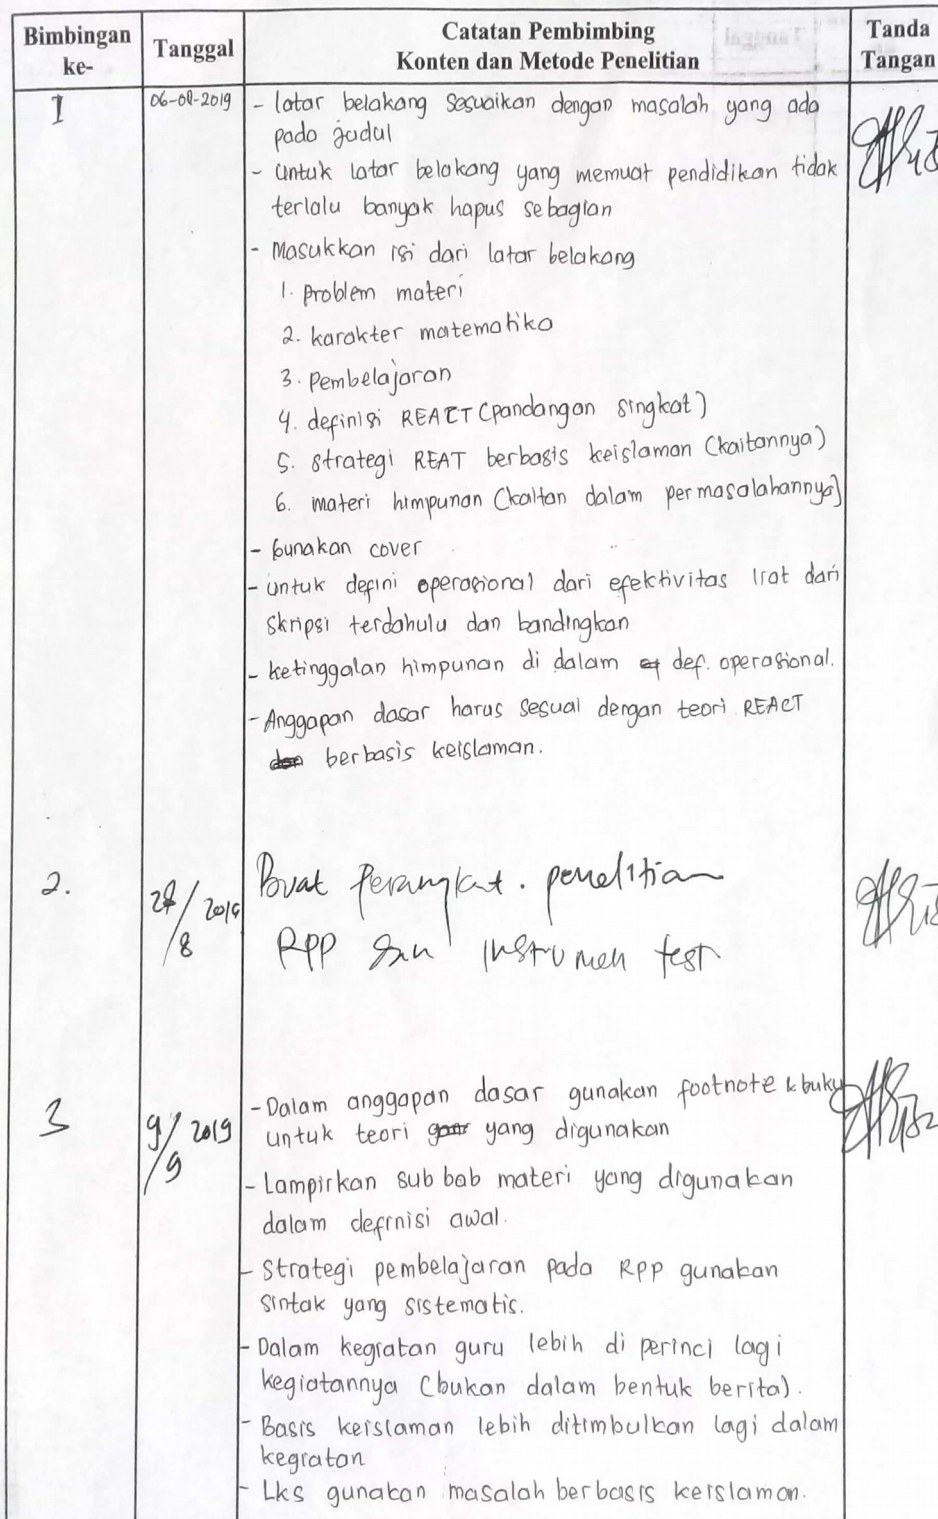 Bimbingan ke-
Tanggal
Catatan Pembimbing
Konten dan Metode Penelitian
Tanda Tangan
1 06-08-2019
- latar belakang sesuaikan dengan masalah yang ada
pada judul
- untuk latar belakang yang memuat pendidikan tidak
terlalu banyak hapus sebagian
- Masukkan isi dari latar belakang
1. problem materi
2. karakter matematika
3. pembelajaran
4. definisi REACT (pandangan singkat)
5. strategi REAT berbasis keislaman (kaitannya)
6. materi himpunan (kaitan dalam permasalahannya)
- Gunakan cover
- untuk defini operasional dari efektivitas lrat dari
skripsi terdahulu dan bandingkan
- ketinggalan himpunan di dalam def. operasional.
- Anggapan dasar harus sesuai dengan teori REACT
berbasis keislaman.
2.
/8 2019
Buat Perangkat . penelitian
RPP dan instrumen test
3
9/9 2019
- Dalam anggapan dasar gunakan footnote & buku
untuk teori yang digunakan
- Lampirkan sub bab materi yang digunakan
dalam definisi awal.
- Strategi pembelajaran pada RPP gunakan
sintak yang sistematis.
- Dalam kegiatan guru lebih di perinci lagi
kegiatannya (bukan dalam bentuk berita).
- Basis keislaman lebih ditimbulkan lagi dalam
kegiatan
- Lks gunakan masalah berbasis keislaman.